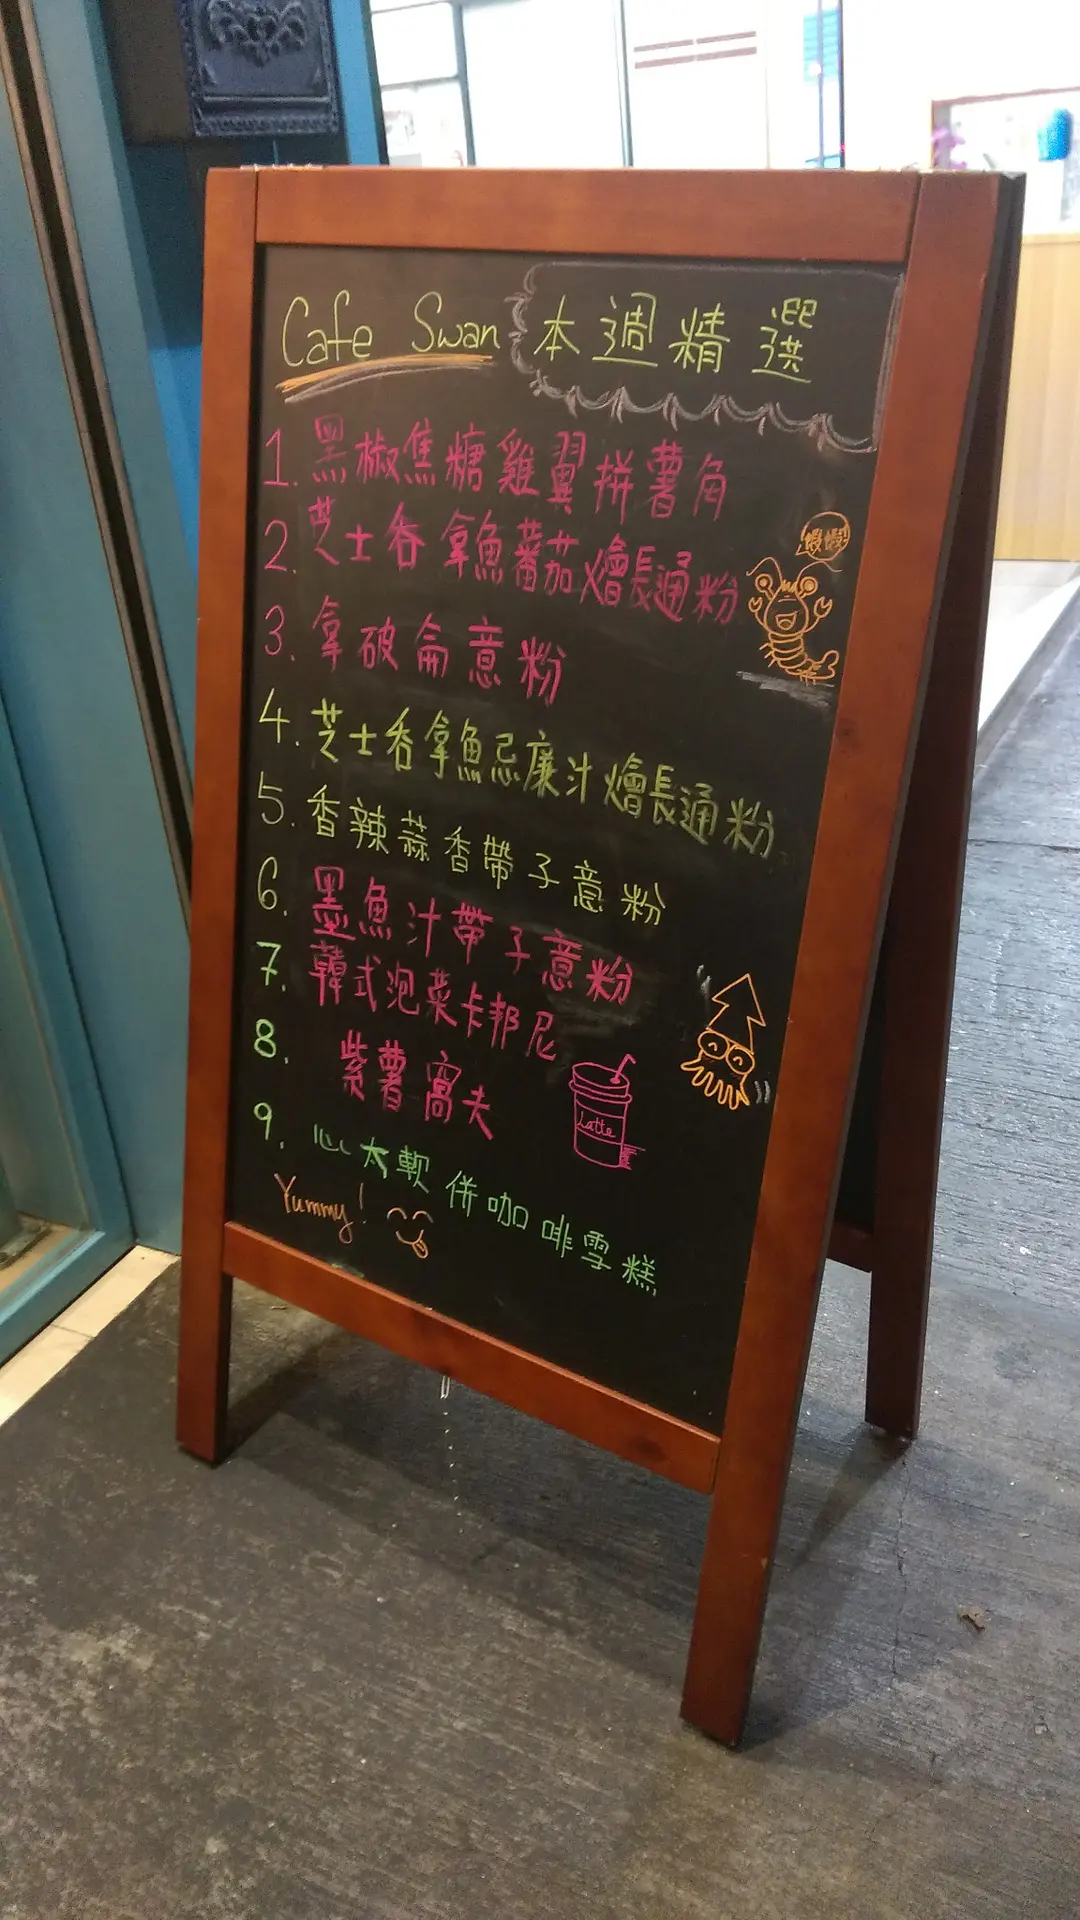 Cafe Swan 本週精選
1. 黑椒焦糖雞翼拼薯角
2. 芝士吞拿魚蕃茄燴長通粉
蝦蝦!
3. 拿破侖意粉
4. 芝士吞拿魚忌廉汁燴長通粉
5. 香辣蒜香帶子意粉
6. 墨魚汁帶子意粉
7. 韓式泡菜卡邦尼
8. 紫薯窩夫
Latte
9. 心太軟併咖啡雪糕
Yummy!